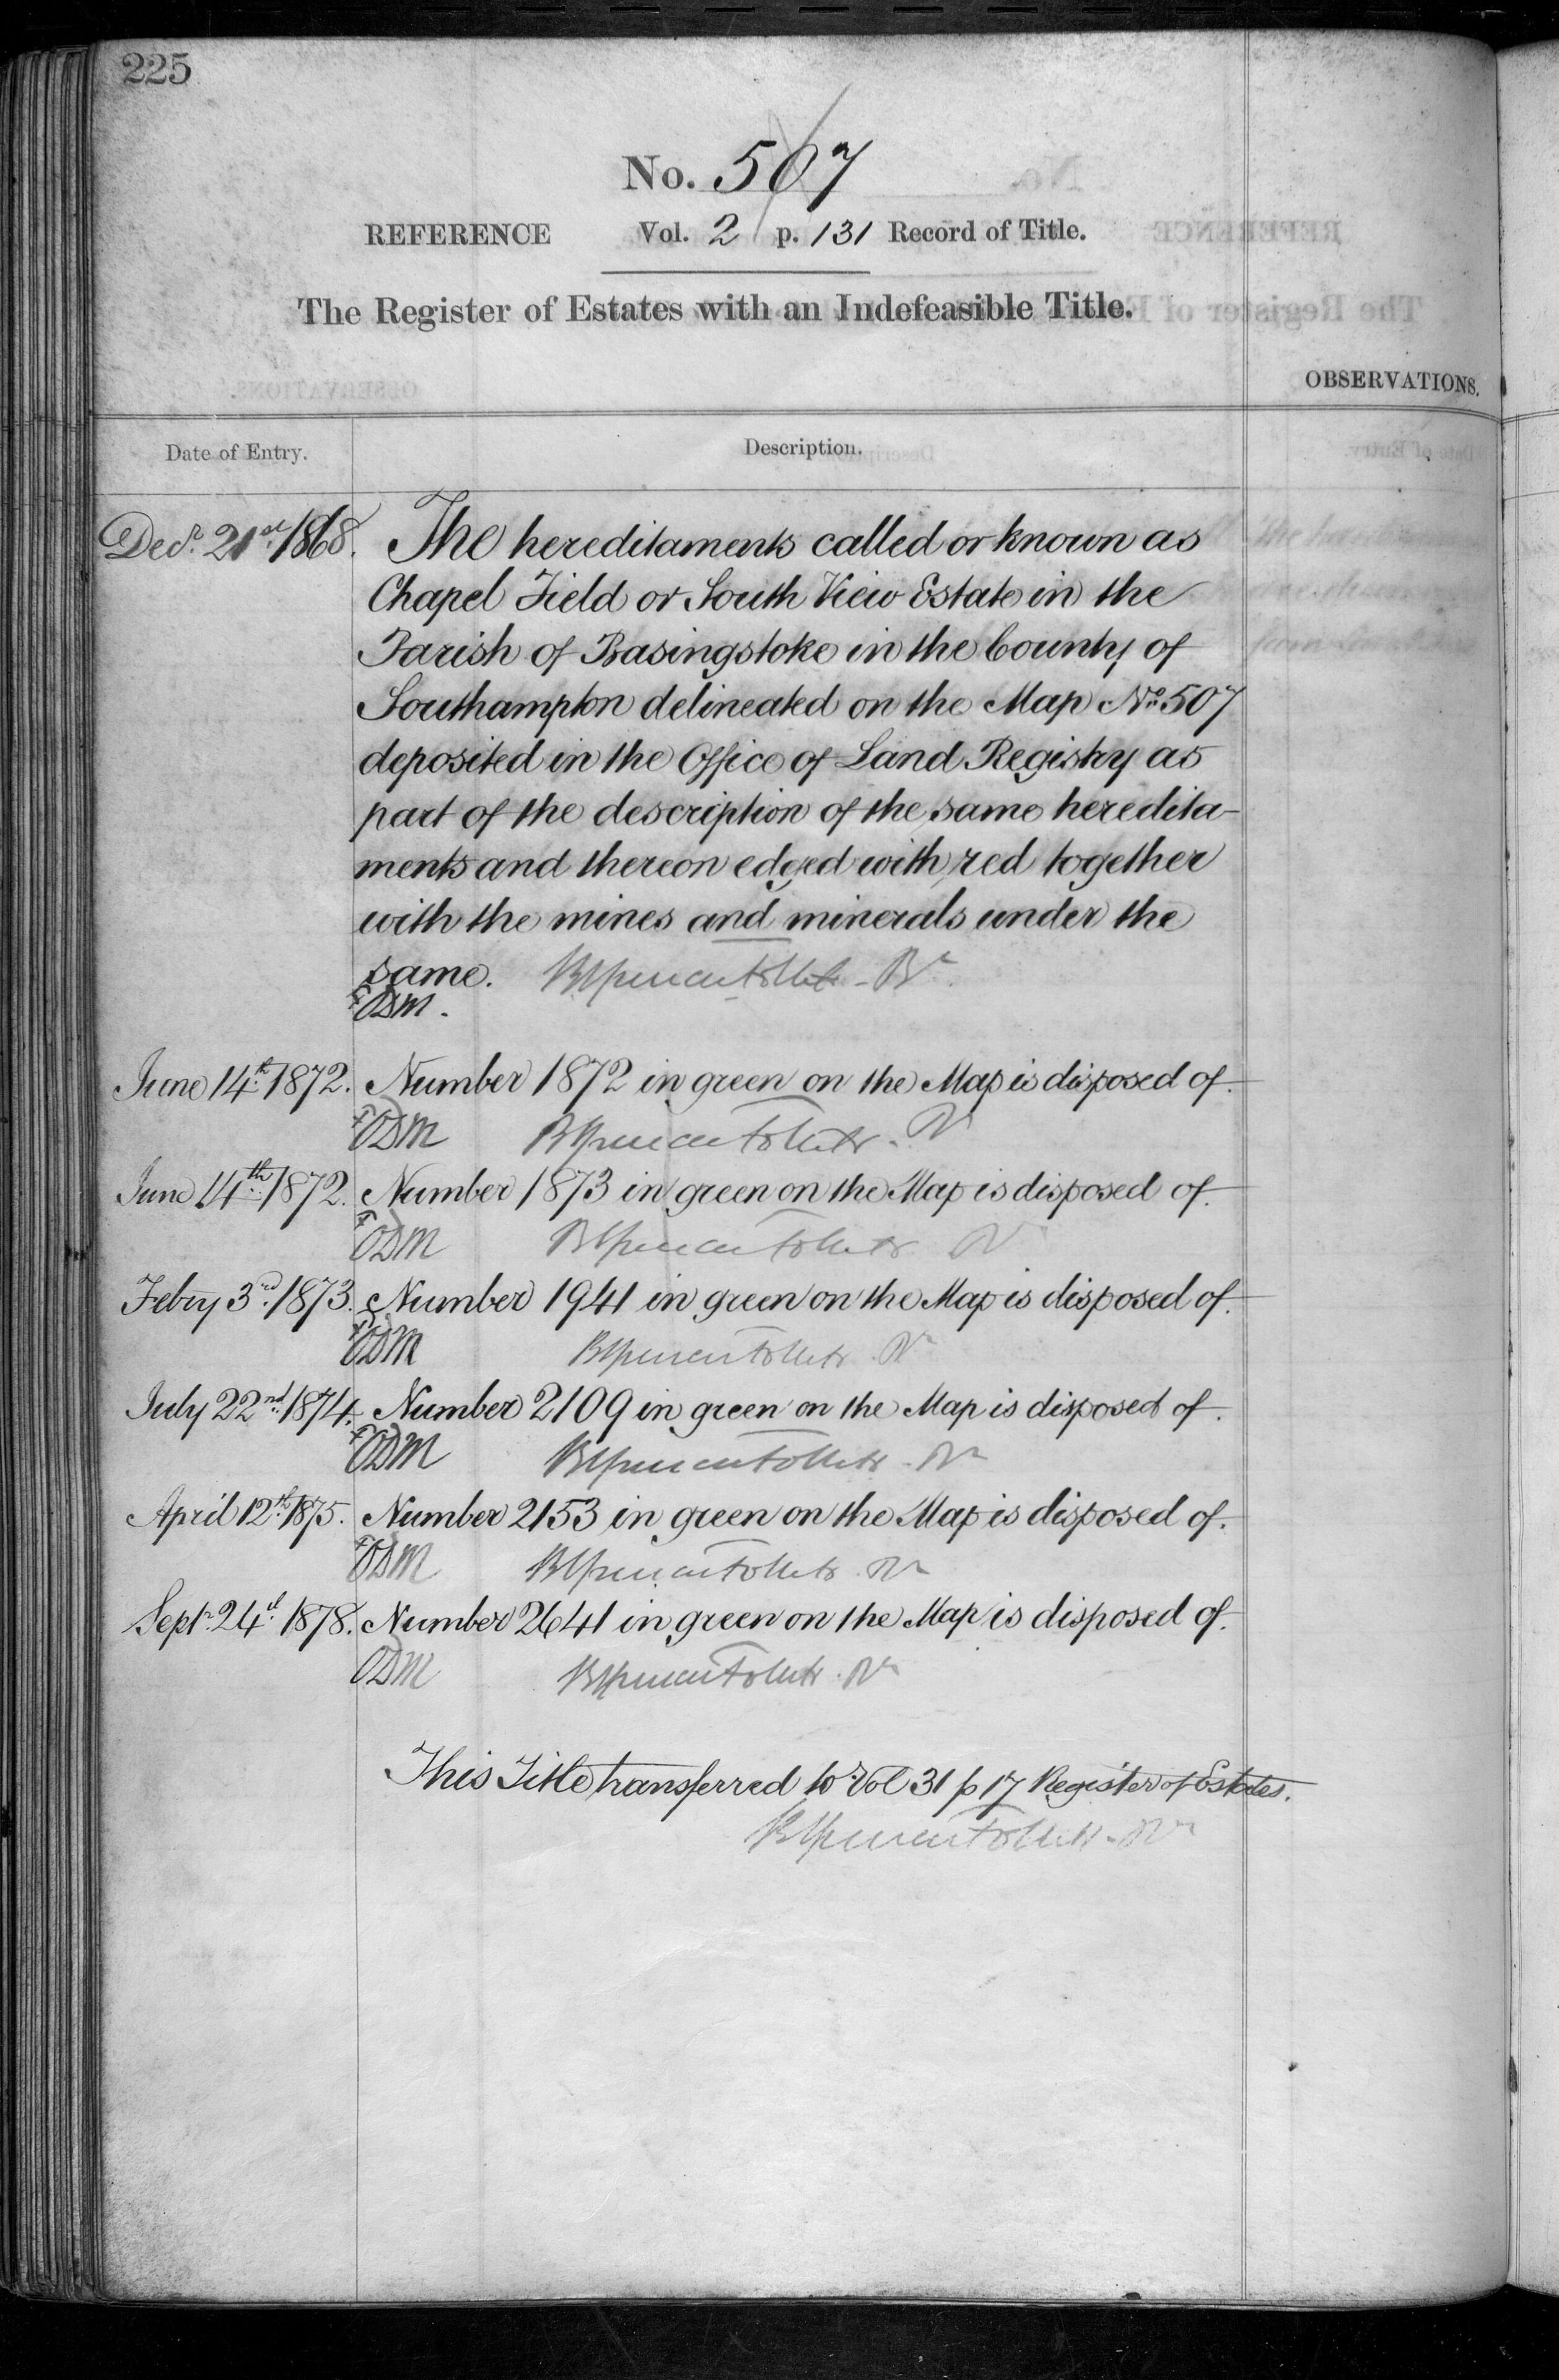 225
No. 507
REFERENCE Vol. 2 p. 131 Record of Title.
The Register of Estates with an Indefeasible Title.
OBSERVATIONS.
Date of Entry. Description.
Decr. 21st 1868. The hereditaments called or known as
Chapel Field or South View Estate in the
Parish of Basingstoke in the County of
Southampton delineated on the Map No. 507
deposited in the Office of Land Registry as
part of the description of the same heredita-
ments and thereon edged with red together
with the mines and minerals under the
same. Brent Spencer Follett - Rr
ODM.
June 14th 1872. Number 1872 in green on the Map is disposed of.
ODM
June 14th 1872. Number 1873 in green on the Map is disposed of.
ODM
Febry 3rd 1873. Number 1941 in green on the Map is disposed of.
ODM
July 22nd 1874. Number 2109 in green on the Map is disposed of.
ODM
April 12th 1875. Number 2153 in green on the Map is disposed of.
ODM
Septr. 24th 1878. Number 2641 in green on the Map is disposed of.
ODM
This Title transferred to Vol 31 p 17 Register of Estates.